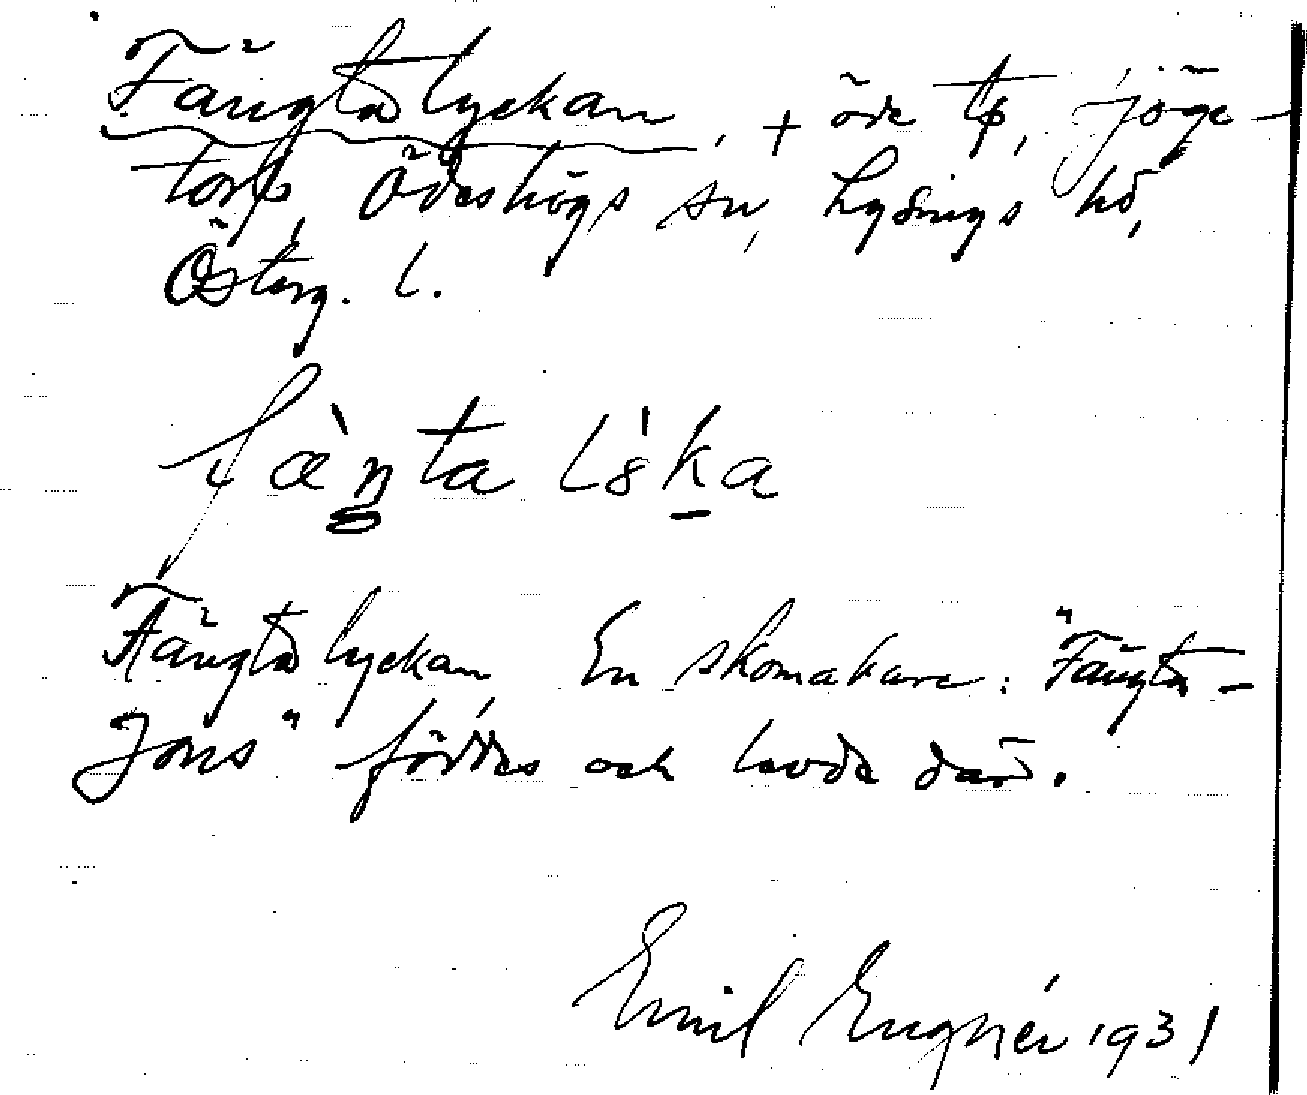 Fängtalyckan, + öde tp, Jöge-
torp, Ödeshögs sn, Lysings hd,
Österg. l.
fæ̀nta lỳka
Fängtalyckan, En skomakare: "Fängta-
Jons" föddes och levde där.
Emil Engnér 1931